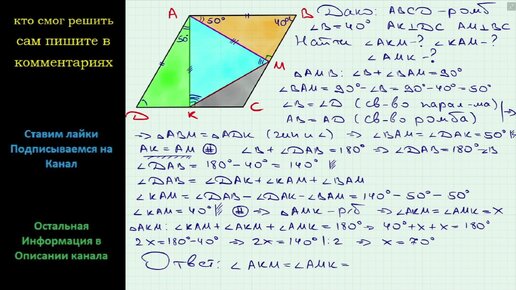 кто смог решить
сам пишите в
комментариях
Ставим лайки
Подписываемся на
Канал
Остальная
Информация в
Описании канала
A
B
50°
40°
50°
M
D
K
C
Дано: ABCD – ромб
∠B = 40° AK⊥DC AM⊥BC
Найти ∠AKM-? ∠KAM-?
∠AMK-?
△AMB: ∠B + ∠BAM = 90°
∠BAM = 90° - ∠B = 90° - 40° = 50°
∠B = ∠D (св-во парал-ма)
AB = AD (св-во ромба)
⇒ △ABM = △ADK (гип и ∠) ⇒ ∠BAM = ∠DAK = 50°
AK = AM # ∠B + ∠DAB = 180° ⇒ ∠DAB = 180° - ∠B
∠DAB = 180° - 40° = 140°
∠DAB = ∠DAK + ∠KAM + ∠BAM
∠KAM = ∠DAB - ∠DAK - ∠BAM = 140° - 50° - 50°
∠KAM = 40° # ⇒ △AMK - р/б ⇒ ∠AKM = ∠AMK = x
△AKM: ∠KAM + ∠AKM + ∠AMK = 180° ⇒ 40° + x + x = 180°
2x = 180° - 40° ⇒ 2x = 140° |:2 ⇒ x = 70°
Ответ: ∠AKM = ∠AMK =